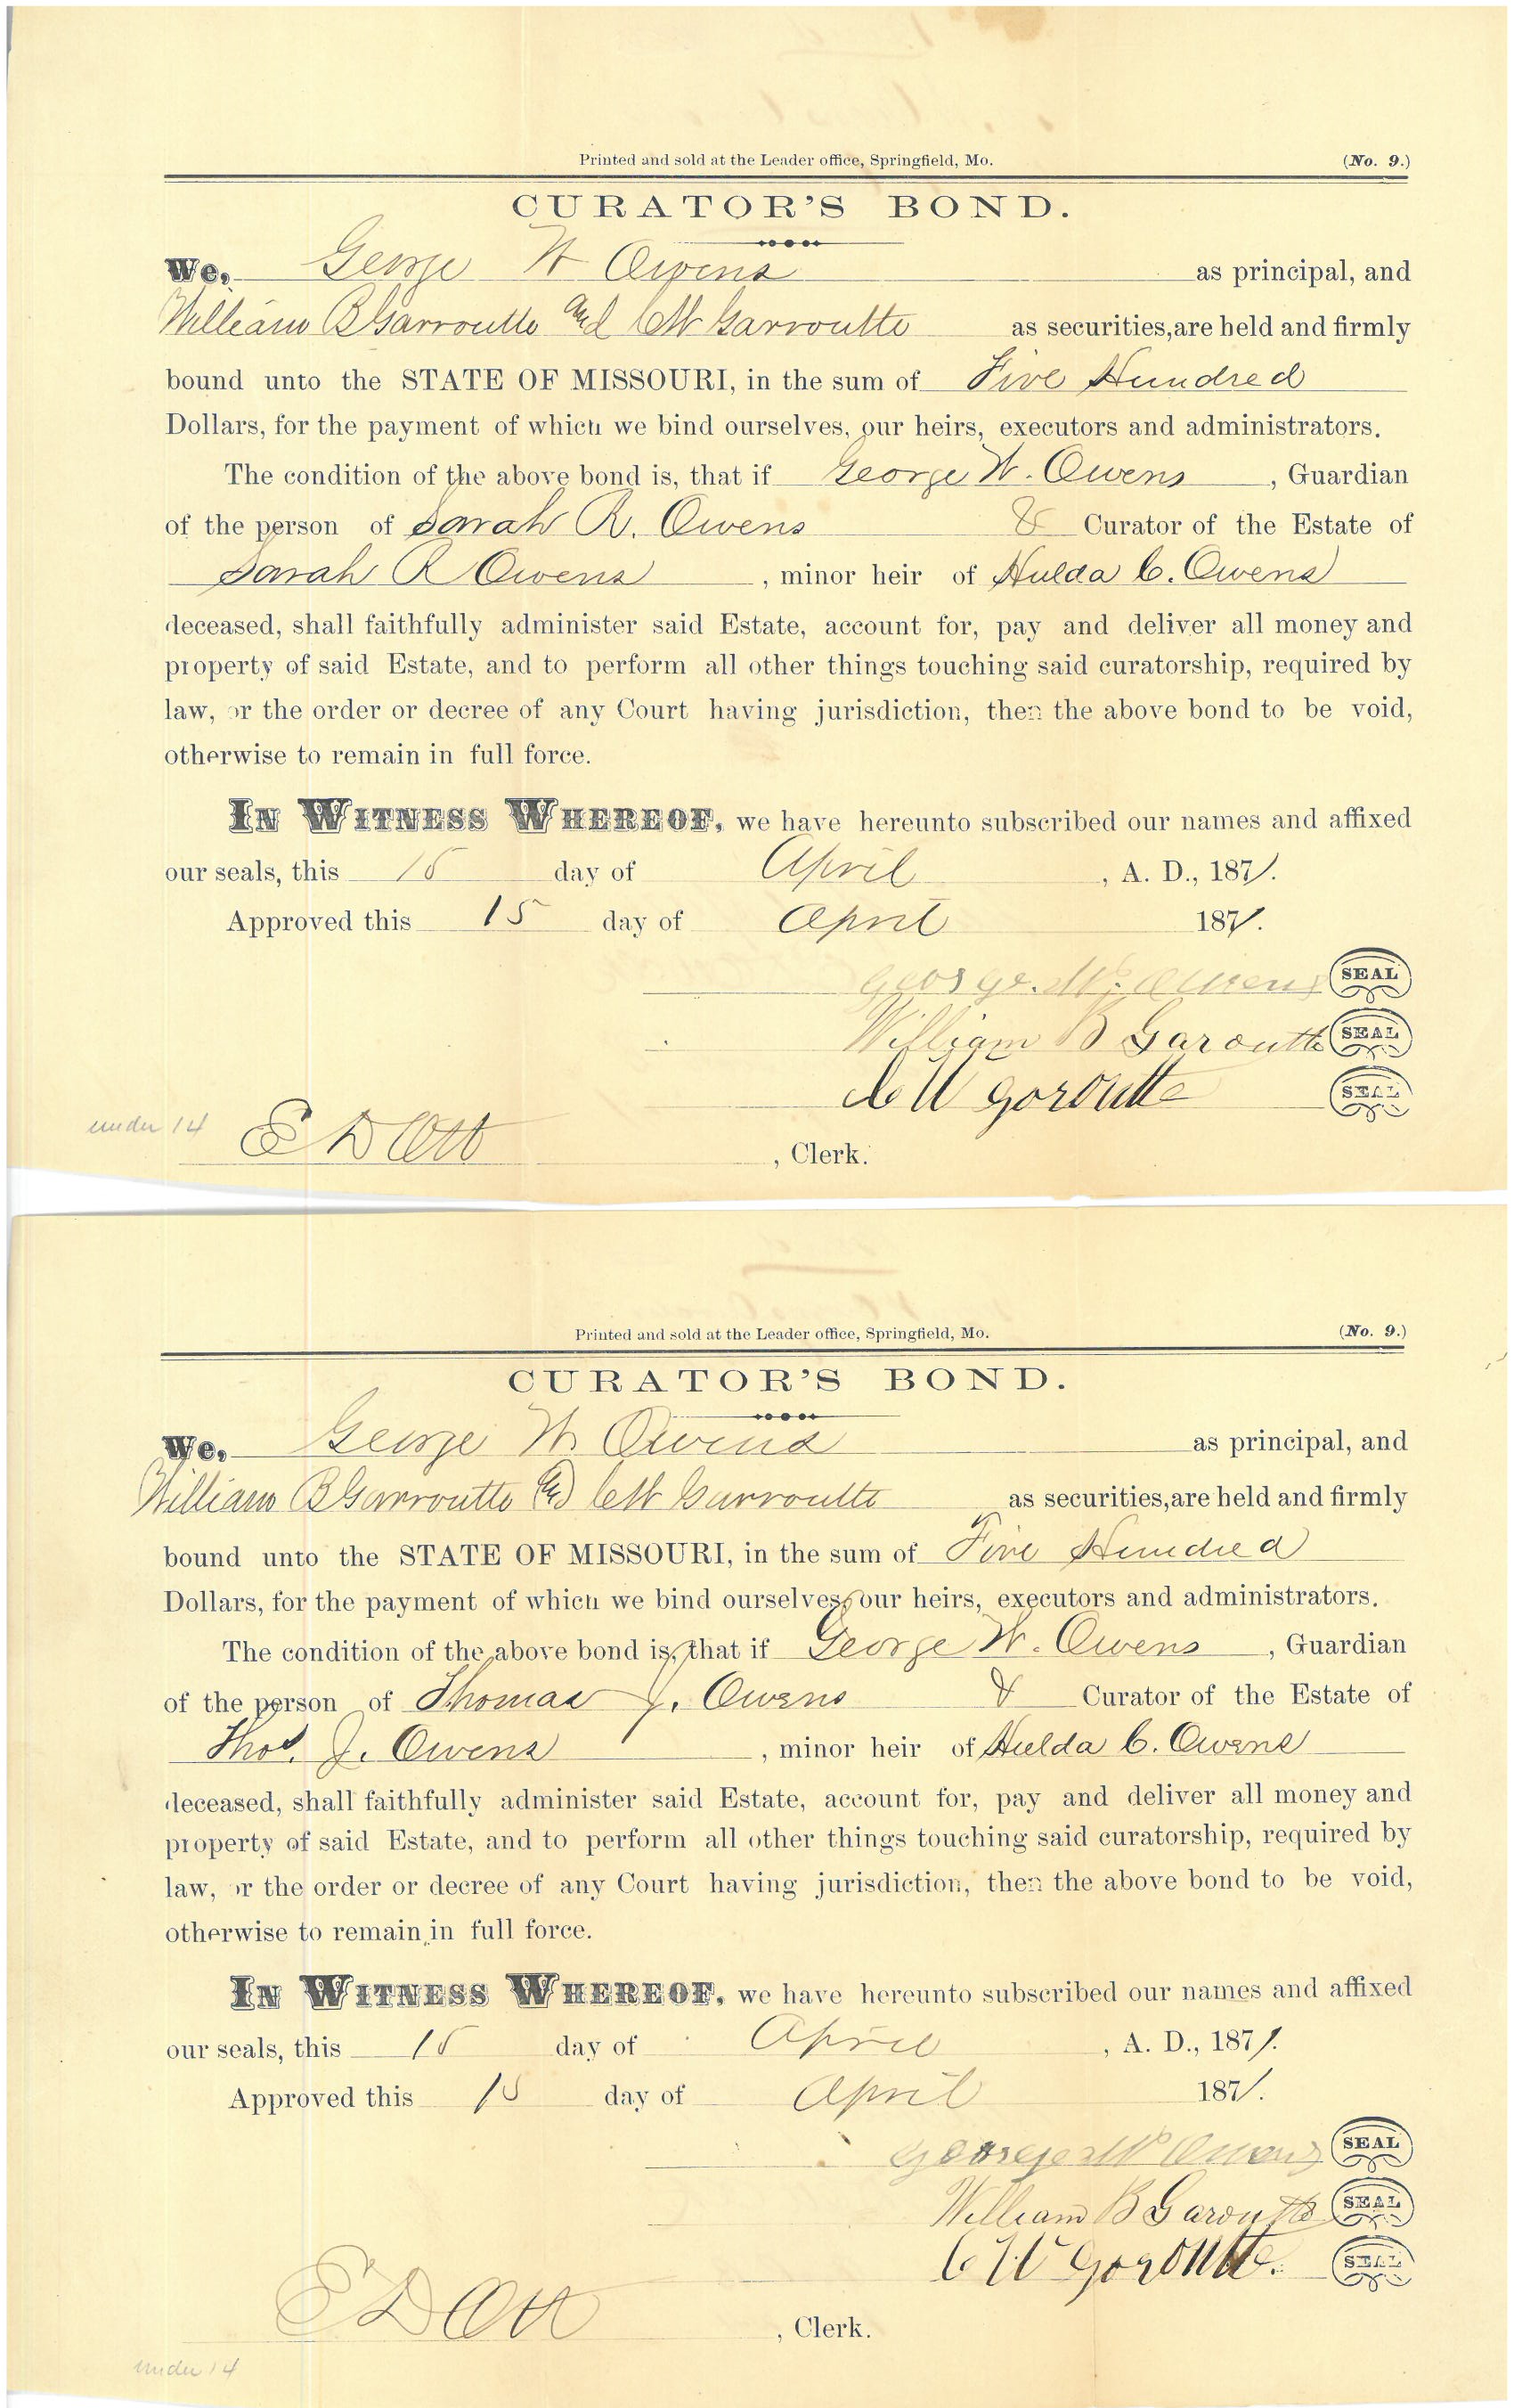 Printed and sold at the Leader office, Springfield, Mo. (No. 9.)
CURATOR'S BOND.
We, George W Owens as principal, and
William B Garroutte and C W Garroutte as securities, are held and firmly
bound unto the STATE OF MISSOURI, in the sum of Five Hundred
Dollars, for the payment of which we bind ourselves, our heirs, executors and administrators.
The condition of the above bond is, that if George W. Owens, Guardian
of the person of Sarah R. Owens & Curator of the Estate of
Sarah R Owens, minor heir of Hulda C. Owens
deceased, shall faithfully administer said Estate, account for, pay and deliver all money and
property of said Estate, and to perform all other things touching said curatorship, required by
law, or the order or decree of any Court having jurisdiction, then the above bond to be void,
otherwise to remain in full force.
IN WITNESS WHEREOF, we have hereunto subscribed our names and affixed
our seals, this 15 day of April, A. D., 1871.
Approved this 15 day of April 1871.
George. W. Owens SEAL
William B Garoutte SEAL
C W Goroutte SEAL
under 14 E D Ott, Clerk.
Printed and sold at the Leader office, Springfield, Mo. (No. 9.)
CURATOR'S BOND.
We, George W. Owens as principal, and
William B Garroutte and C W Garroutte as securities, are held and firmly
bound unto the STATE OF MISSOURI, in the sum of Five Hundred
Dollars, for the payment of which we bind ourselves, our heirs, executors and administrators.
The condition of the above bond is, that if George W. Owens, Guardian
of the person of Thomas J. Owens & Curator of the Estate of
Thos. J. Owens, minor heir of Hulda C. Owens
deceased, shall faithfully administer said Estate, account for, pay and deliver all money and
property of said Estate, and to perform all other things touching said curatorship, required by
law, or the order or decree of any Court having jurisdiction, then the above bond to be void,
otherwise to remain in full force.
IN WITNESS WHEREOF, we have hereunto subscribed our names and affixed
our seals, this 15 day of April, A. D., 1871.
Approved this 15 day of April 1871.
George W Owens SEAL
William B Garoutte SEAL
C W Goroutte. SEAL
E D Ott, Clerk.
under 14